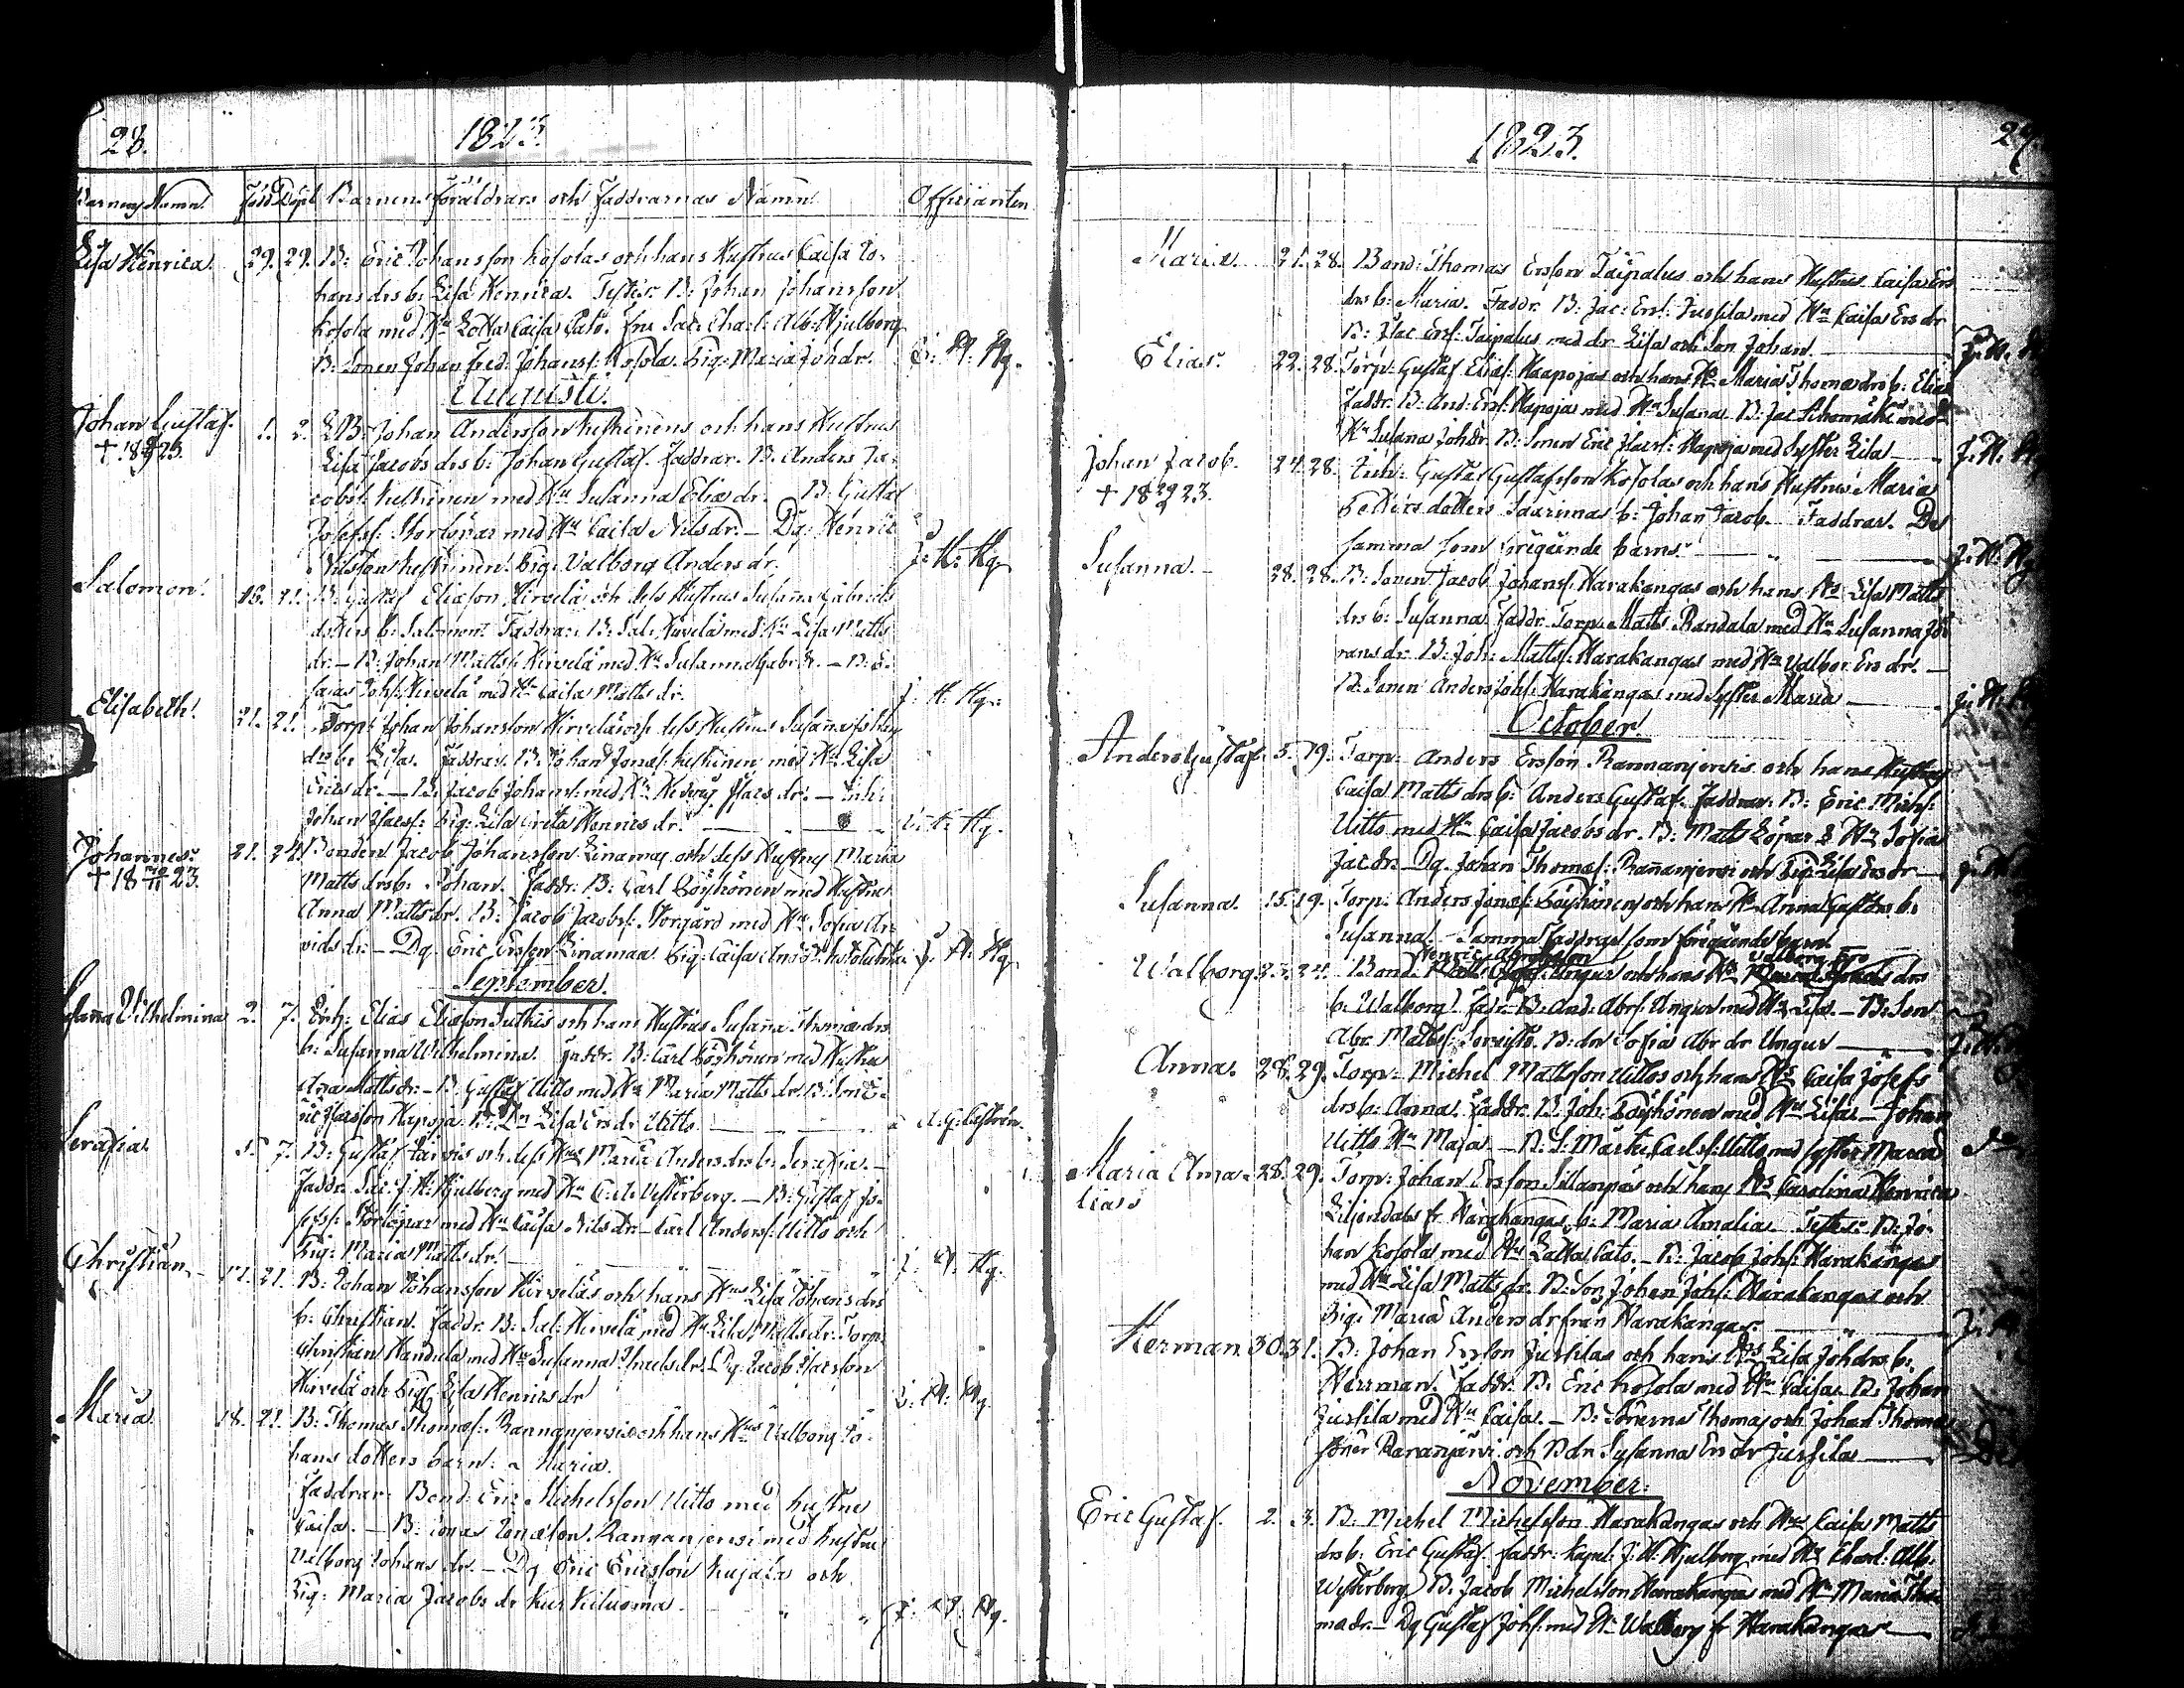 28.
1823.
Barnens Namn Född Döpt Barnens föräldrars och Faddrarnas Namn Officianten
Lisa Henrica. 29. 29. B: Eric Johansson Kosolas och hans Hustrus Caisa Jo-
hans drs b: Lisa Henrica. Testes: B: Johan Johansson
Kosola med Hu Lotta Caisa Cato. Charl: Alb: Hjulberg
B: Sonen Johan Fred: Johanss: Kosola. Pig: Maria Joh dr.
Augusti.
Johan Gustaf. 1. 2. B: Johan Andersson Keskinens och hans Hustrus
† 18 23. Lisa Jacobs drs b: Johan Gustaf. Faddrar. B. Anders Ja-
cobss: Keskinen med Hu Susanna Elias dr. B: Gustaf
Josefss: Storlöpar med Hu Caisa Nils dr. – Dg: Henric
Nilsson Keskinen. Pig: Valborg Anders dr. J: H: Hg.
Salomon. 16. 21. B: Gustaf Eliasson Hirvelä och dess Hustrus Susanna Gabriels
dotters b: Salomon. Faddrar: B: Sal: Hirvelä med Hu Lisa Matts
dr. – B: Johan Mattss: Hirvelä med Hu Susanna Gabr dr. – B: E-
saias Johs: Hirvelä med Hu Caisa Matts dr. J: H: Hg:
Elisabeth. 21. 21. Torp: Johan Johansson Hirvelä och dess Hustrus Susanna Johans
drs b: Lisa. Faddrar. B: Johan Jonæs: Keskinen med Hu Lisa
Erics dr. – B: Jacob Johanss: med Hu Isacs dr. – Inh:
Johan Isacss: Pig: Lisa Greta Henrics dr. J: H: Hg.
Johannes. 21. 24. Bonden Jacob Johansson Linamas och dess Hustrus Maria
† 18 23. Matts drs b: Johan. Faddr: B: Carl Böyhönen med Hustru
Anna Matts dr. B: Jacob Jacobss: Storgård med Hu Sofia Ar-
vids dr. – Dg. Eric Ersson Linamaa Pig: Caisa J: H: Hg.
September.
Susanna Vilhelmina 2. 7. Inh: Elias Eliasson Suthis och hans Hustrus Susanna Thomæ drs
b: Susanna Wilhelmina. Faddr: B: Carl Böyhönen med Hustru
Anna Matts dr. – B: Gustaf Uitto med Hu Maria Matts dr. B: Son E-
ric Isacsson Hapoja. B: Dr Lisa Ers dr Uitto. A. G. Castrén.
Serafia. 5. 7. B: Gustaf Järvis och dess Hus Maria Anders drs b: Serafia. –
Faddr. Sac: J: H: Hjulberg med Hu C. A. Westerberg. – B: Gustaf Jo-
sefss: Storlöpar med Hu Caisa Nils dr. – Carl Anderss: Uitto och
Pig: Maria Matts dr. J: H: Hg.
Christian. 17. 21. B: Johan Johansson Hirveläs och hans Hus Lisa Johans drs
b: Christian. Faddr. B: Sal: Hirvelä med Hu Lisa Matts dr. Torp:
Christian Handula med Hu Susanna dr. Dg. Jacob Isacsson
Hirvelä och Pig: Lisa Henrics dr J: H: Hg.
Maria. 18. 21. B: Thomas Thomæs: Rannanjervis och hans Hus Valborg Jo-
hans dotters barn: Maria.
Faddrar: Bond. Eric Michelsson Uitto med hustru
Caisa. – B: Jonas Jonæson Rannanjervi med hustru
Valborg Johans dr. – Dg Eric Ericsson Kujala och
Pig: Maria Jacobs dr Kurkiluoma. J: H: Hg.
1823.
Maria. 21. 28. Bond: Thomas Ersson Taipalus och hans Hustrus Caisa Ers
drs b: Maria. Faddr. B: Jac: Erss: Jussila med Hu Caisa Ers dr
B: Isac Erss: Taipalus med dr Lisa och Son Johan. J: H.
Elias. 22. 28. Torp: Gustaf Eliæs: Haapojas och hans Hs Maria Thomæ drs b: Elias
Faddr. B: And: Erss: Hapoja med Hu Susana. B: Jac med
Hu Susana Joh dr. B: Sonen Eric Isacss: Hapoja med Syster Lisa J. H.
Johan Jacob. 24. 28. Inh: Gustaf Gustafsson Kosolas och hans Hustrus Maria
† 18 23. Petters dotters Saarinnas b: Johan Jacob. Faddrar. De
samma som föregående barns. J: H. H
Susanna. 28. 28. B: Sonen Jacob Johanss: Harakangas och hans Hs Lisa Matts
drs b: Susanna. Faddr: Torp: Matts Randala med Hu Susanna Jö-
rans dr. B: Joh: Mattss: Harakangas med Hu Valbor: Ers dr. –
B: Sonen Anders Johs: Harakangas med Syster Maria J. H.
October.
Anders Gustaf. 5. 19. Torp: Anders Ersson Rannanjervis och hans Hustrus
Caisa Matts drs b: Anders Gustaf. Faddrar: B: Eric Michs:
Uitto med Hu Caisa Jacobs dr. B: Matts Löpar & Hu Sofia
Jac dr. – Dg. Johan Thomæs: Rannanjervi och Pig: Lisa Ers dr J. H.
Susanna. 15. 19. Torp: Anders Jonæs: Böyhönen och hans Hs Anna Gust drs b:
Susanna. – Samma Faddrar som föregående barn.
Henric Abrahsson Valborg Ers
Walborg. 23. 24. Bond: Ungur och hans Hs drs
b: Walborg. Fadr: B: And: Abrs: Ungur med Hu Lisa. – B: Son
Abr. Mattss: B: dr Sofia Abr. dr Ungur J. H.
Anna. 28. 29. Torp: Michel Mattsson Uittos och hans Hs Caisa Josefs
drs b: Anna. Faddr. B: Joh: Böyhönen med Hu Lisa. – Johan
Uitto Hu Maja. – B. S: Märten Carlss: Uitto med syster Maria
Maria Ama- 28. 29. Torp: Johan Ersson Sillanpäs och hans Hs Carolina Henrica
lia. Liljendals fr. Harakangas, b: Maria Amalia. Testes: B: Jo-
han Kosola med Hu Lotta Cato. – B: Jacob Johs: Harakangas
med Hu Lisa Matts dr. B: Son Johan Johs: Harakangas och
Pig: Maria Anders dr från Harakangas. J: H
Herman. 30. 31. B: Johan Ersson Jussilas och hans Hs Lisa Joh drs b:
Herrman. Faddr. B: Eric Kosola med Hu Caisa. B: Johan
Jussila med Hu Caisa. – B: Sönerne Thomas och Johan Thomæ
söner Rananjärvi och B dr Susanna Ers dr Jussila
November.
Eric Gustaf. 2. 3. B: Michel Michelsson Harakangas och Hus Caisa Matts
drs b: Eric Gustaf. Faddr: Kapel: J: H: Hjulberg med Hu Charl: Alb:
Westerberg. B: Jacob Michelsson Harakangas med Hu Maria Tho-
mæ dr. – Dg Gustaf Johs: med Hu Walborg fr Harakangas